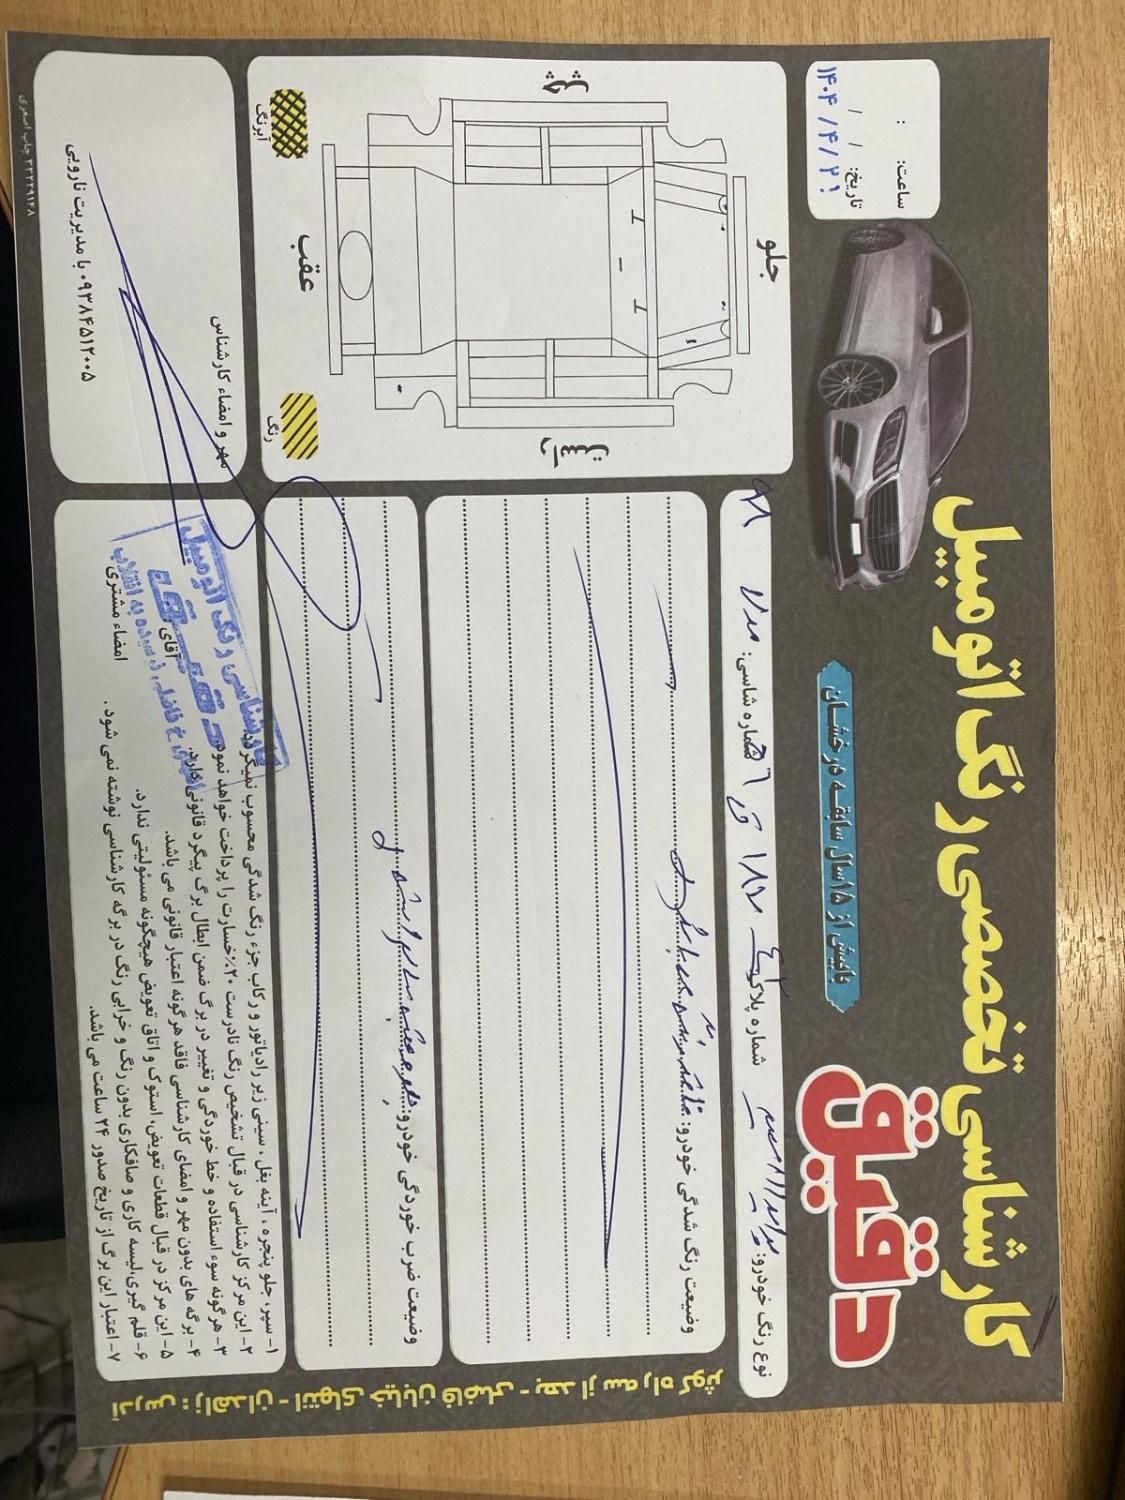 کارشناسی تخصصی رنگ اتومبیل
دقیق
با بیش از ۱۵ سال سابقه درخشان
ساعت: :
تاریخ: / /
۱۴۰۴/۴/۲۱
نوع رنگ خودرو: شماره پلاک: شماره شاسی: مدل
وضعیت رنگ شدگی خودرو:
وضعیت ضرب خوردگی خودرو:
چپ
جلو
عقب
راست
آبرنگ
رنگ
۱- سپر، جلو پنجره، آینه بغل، سینی زیر رادیاتور و رکاب جزء رنگ شدگی محسوب نمیگردد.
۲- این مرکز کارشناسی در قبال تشخیص رنگ نادرست ۲۰٪ خسارت را پرداخت خواهد نمود.
۳- هرگونه سوء استفاده و خط خوردگی و تغییر در برگ ضمن ابطال برگ پیگرد قانونی دارد.
۴- برگه های بدون مهر و امضای کارشناسی فاقد هرگونه اعتبار قانونی می باشد.
۵- این مرکز در قبال قطعات تعویض، استوک و اتاق تعویض هیچگونه مسئولیتی ندارد.
۶- قلم گیری، لیسه کاری و صافکاری بدون رنگ و خرابی رنگ در برگه کارشناسی نوشته نمی شود.
۷- اعتبار این برگ از تاریخ صدور ۲۴ ساعت می باشد.
آقای
امضاء مشتری
کارشناسی رنگ اتومبیل
دقیق
مهر و امضاء کارشناس
۰۹۳۸۴۵۱۲۰۰۵ با مدیریت نارویی
آدرس: زاهدان - انتهای خیابان فاضلی - بعد از سه راه کوثر
۳۳۲۲۹۱۴۸ چاپ اصغری